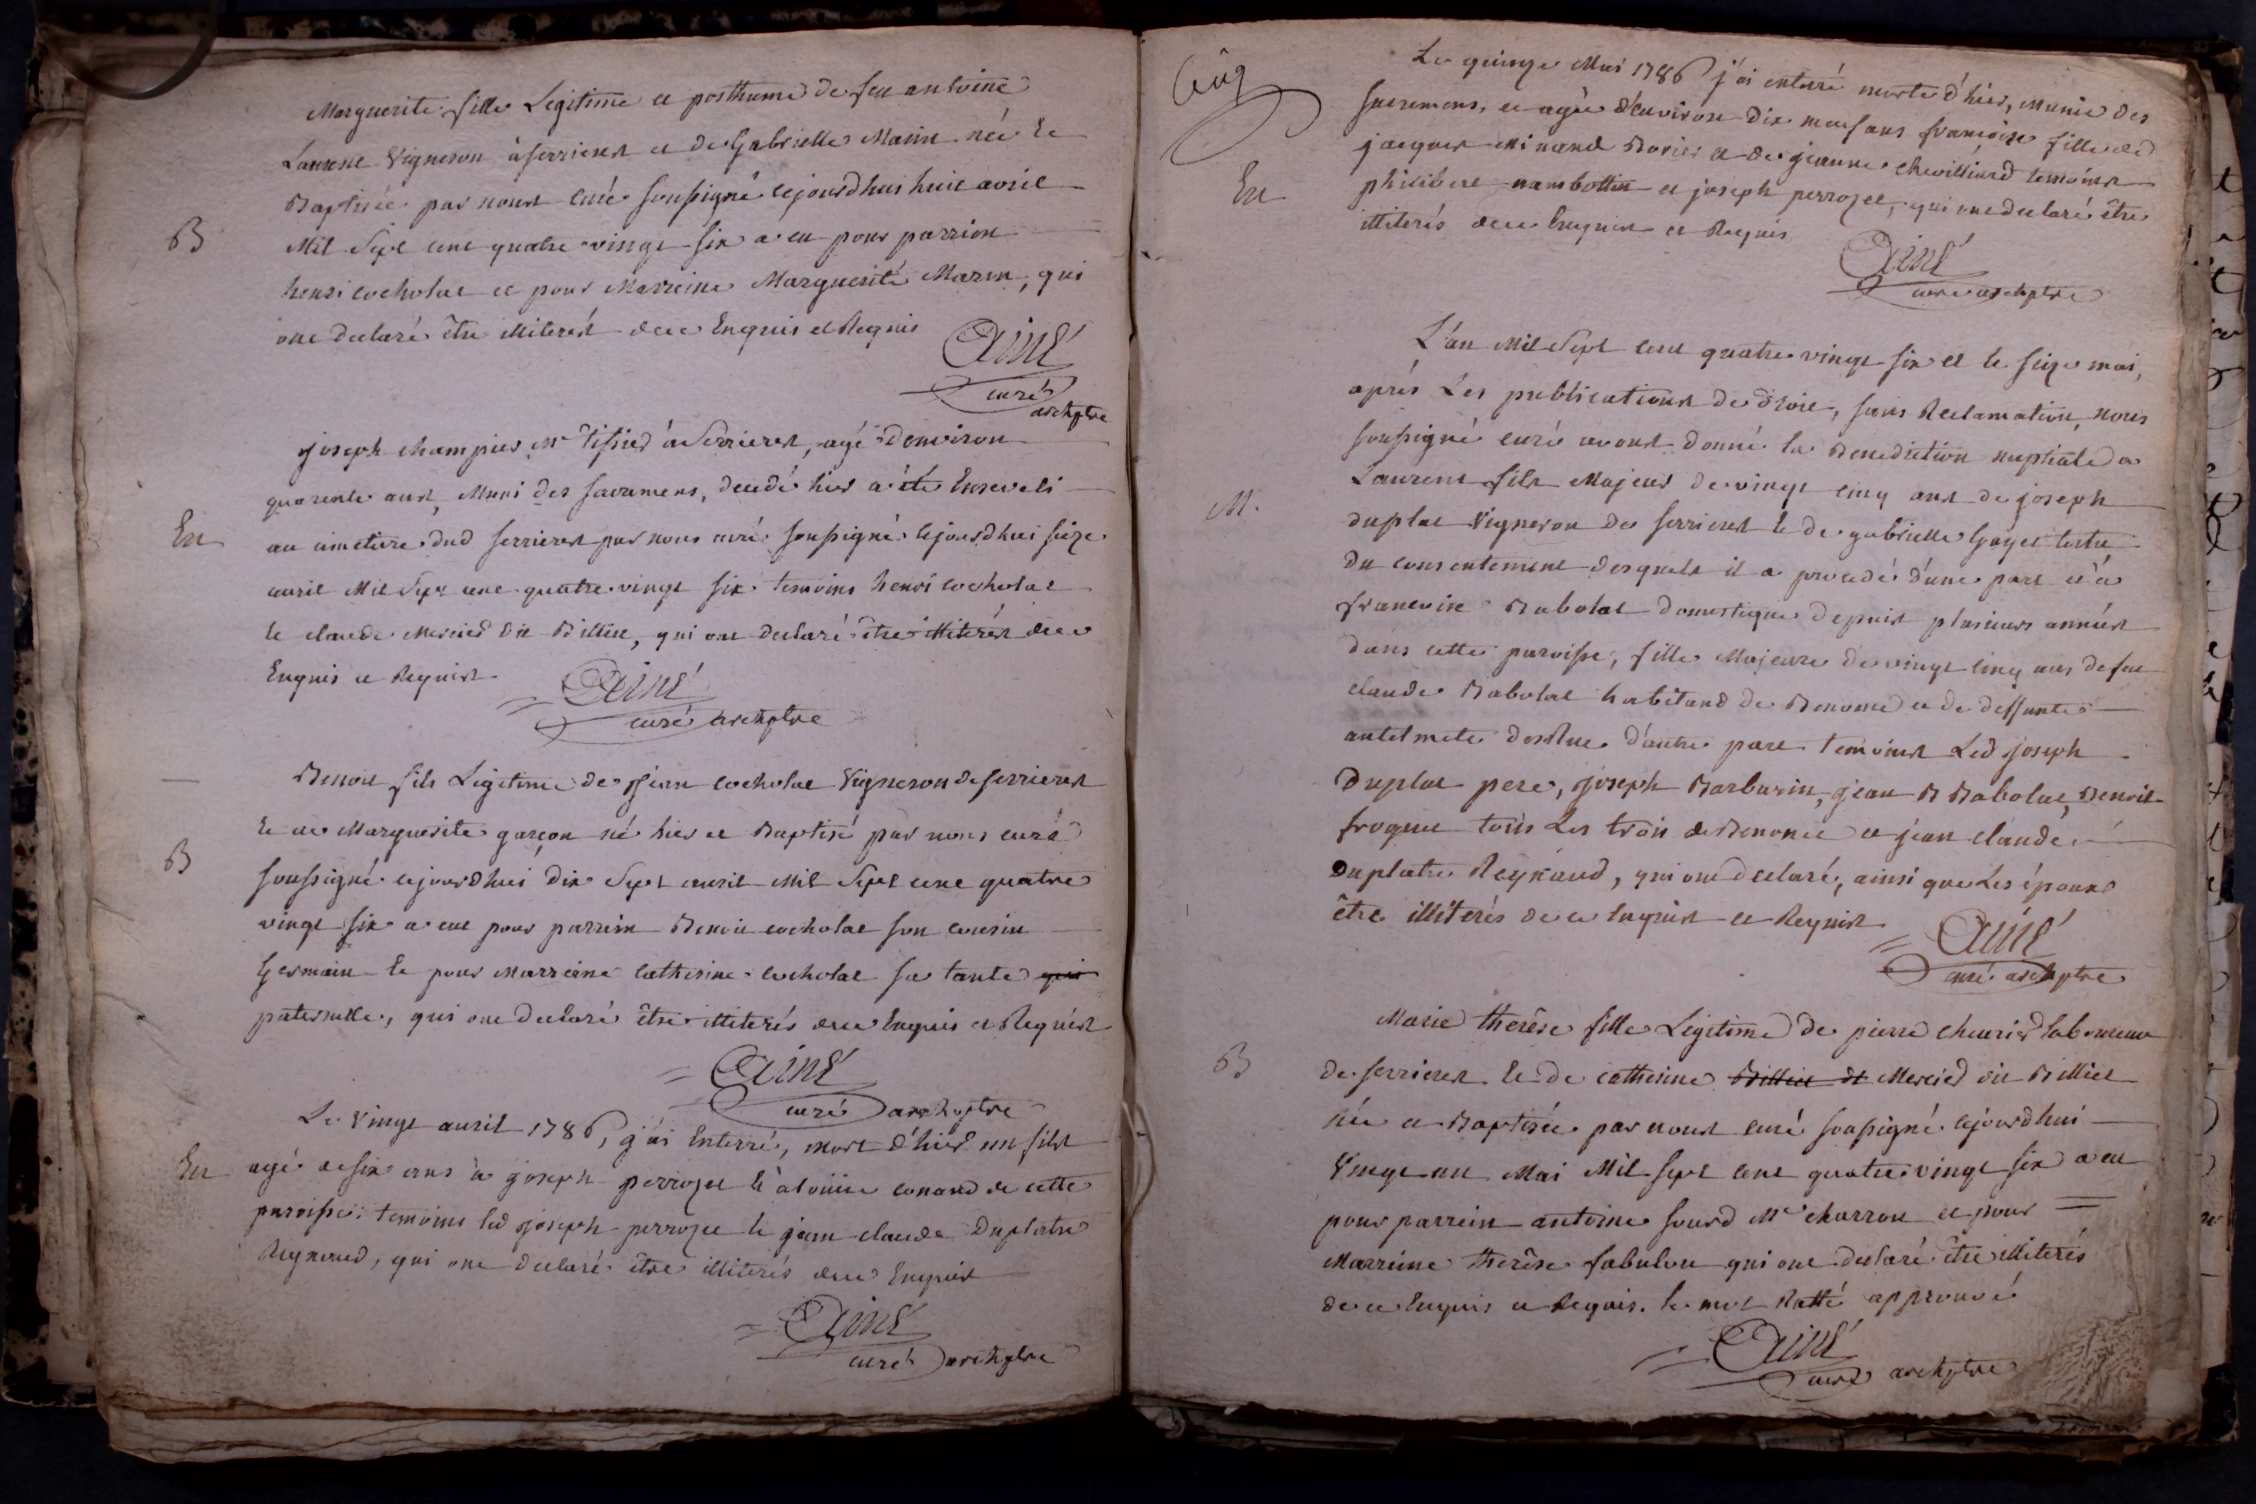 Marguerite fille Legitime et posthume de feu antoine
Laurent Vigneron à serrieres et de Gabrielle Marin née et
Baptisée par nous curé soussigné cejourdhui huit avril
B
Mil Sept cent quatre vingt six a eu pour parrion
henri cocholat et pour Marreine Marguerite Marin, qui
ont declaré être illiterés de ce Enquis et Requis
Ainé
curé
archiptre
joseph champier Me tissied à Serrieres, agé d'environ
quarente ans, Muni des sacremens, decedé hier a été Enseveli
En
au cimetiere dud serrieres par nous curé soussigné cejourdhui seize
avril Mil Sept cent quatre vingt six temoins henri cocholat
et claude Mercied dit Billiet, qui ont declaré être illiterés de ce
Enquis et Requist
Ainé
curé archiptre
Benoit fils Legitime de Jean cocholat Vigneron de serrieres
et de Marguerite garçon né hier et Baptisé par nous curé
B
soussigné cejourdhui dix Sept avril Mil Sept cent quatre
vingt six a eut pour parrein Benoit cocholat son cousin
Germain et pour Marreine catherine cocholat sa tante qui
paternelle, qui ont declaré être illiterés de ce Enquis et Requist
Ainé
curé archiptre
Le Vingt avril 1786, j'ai Enterré, mort d'hier un fils
En
agé de six ans à joseph perrozet et à conand de cette
paroisse: temoins led joseph perrozet et jean claude Duplatre
Reynaud, qui ont declaré être illiterés de ce Enquist
Ainé
curé archiptre
Cinq
Le quinze Mai 1786 j'ai enterré morte d'hier, Munie des
sacremens, et agée d'environ dix neuf ans francoise fille de
jacques et de jeanne chevilliard temoins
En
philibert et joseph perrozet, qui ont declaré être
illiterés de ce Enquist et Requis
Ainé
curé archiptre
L'an Mil Sept cent quatre vingt six et le seize mai,
après Les publications de droit, sans Reclamation, nous
soussigné curé avons donné la Benediction nuptiale a
Laurent fils Majeur de vingt cinq ans de joseph
M.
duplat Vigneron de serrieres et de gabrielle Goyet
du consentement desquels il a procedé d'une part et à
francoise Babolat domestique depuis plusieurs années
dans cette paroisse, fille Majeure de vingt cinq ans de feu
claude Babolat habitand de Benonce et de deffunte
antelmete d'autre part temoins Led joseph
Duplat pere, joseph Barbarin, jean B Babolat, Benoit
froquet tous Les trois de Benonce et jean claude
Duplatre Reynaud, qui ont declaré, ainsi que Les époux
être illiterés de ce Enquist et Requist
Ainé
curé archiptre
Marie therêse fille Legitime de pierre laboureur
B
de serrieres et de catherine Billiet dt Mercied dit Billiet
née et Baptisée par nous curé soussigné cejourdhui
Vingt un Mai Mil Sept cent quatre vingt six a eu
pour parrein antoine sourd Me charron et pour
Marreine therêse qui ont declaré être illiterés
de ce Enquis et Requis. le mot Ratté approuvé
Ainé
curé archiptre